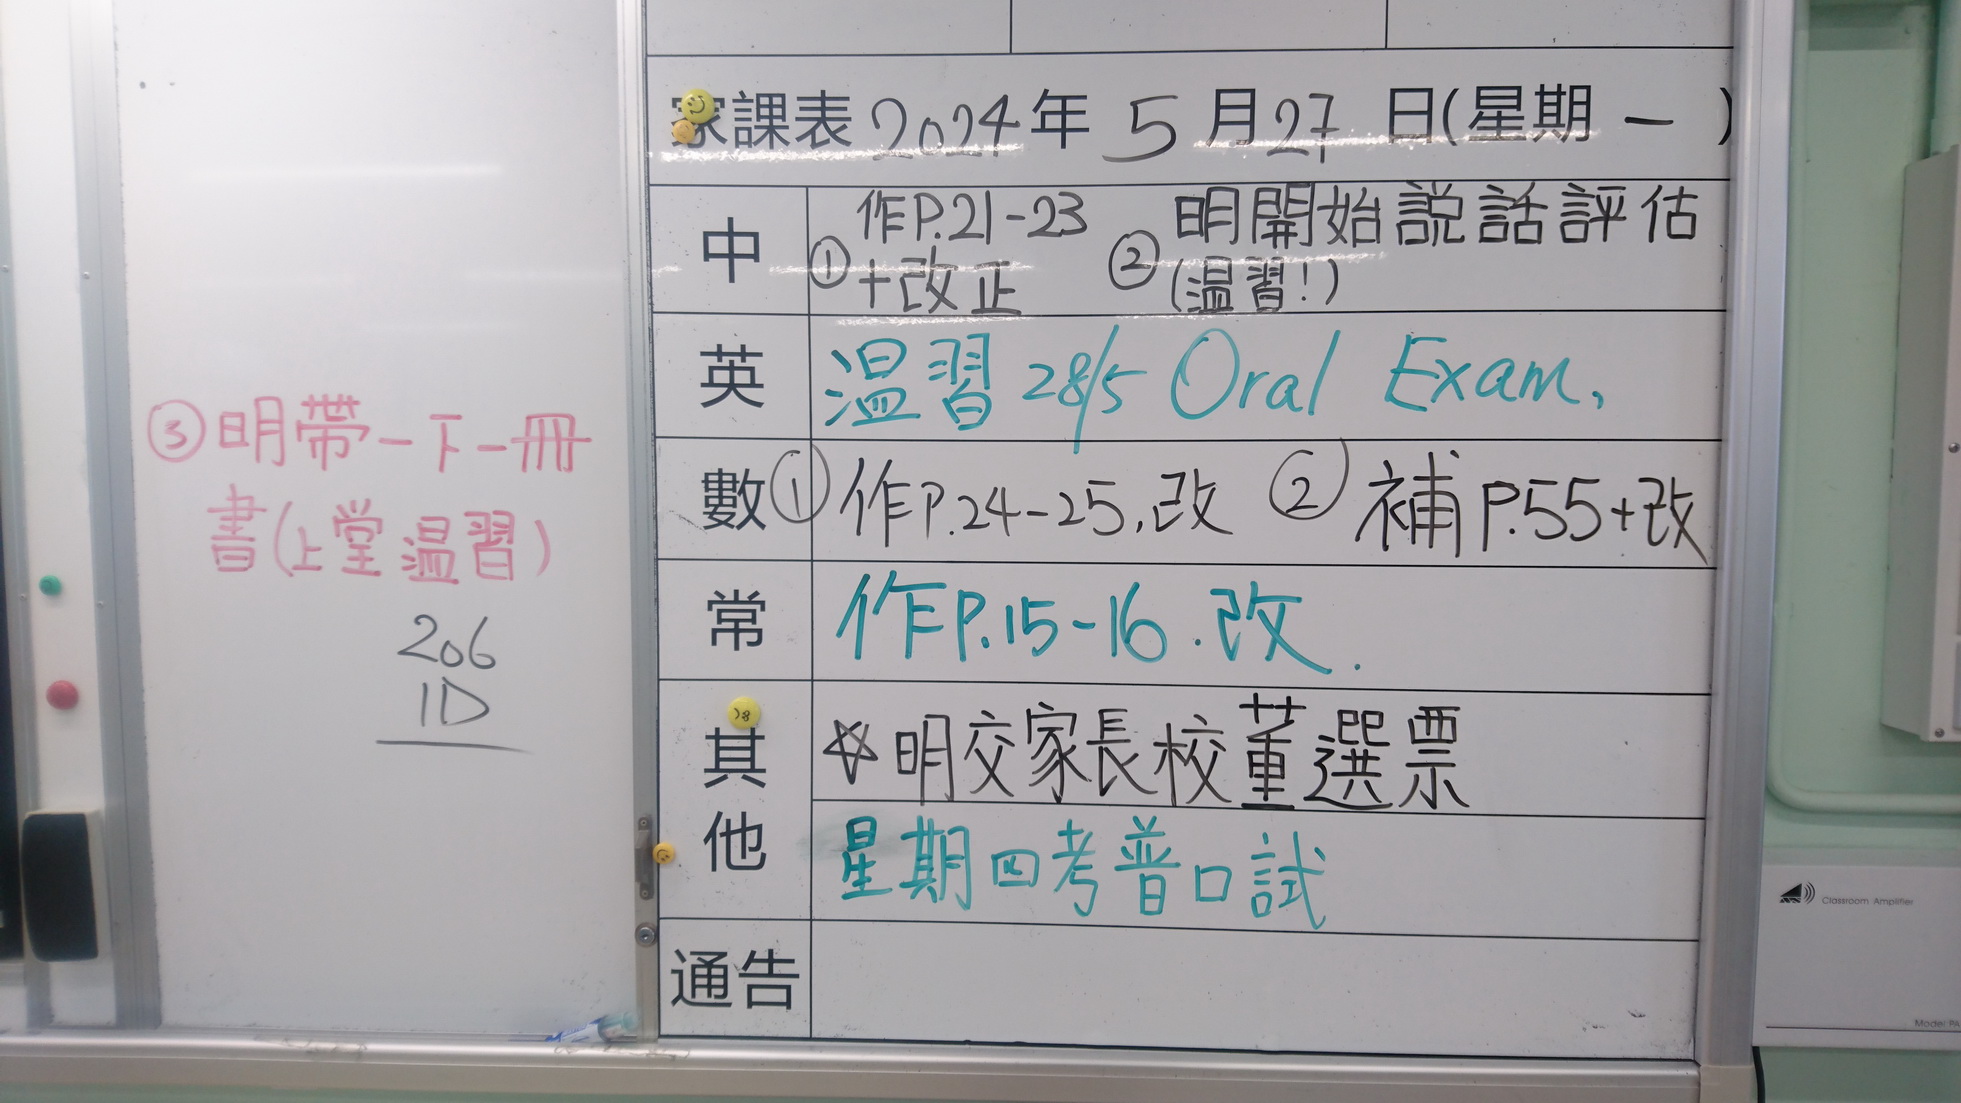 家課表 2024年 5月27日(星期一)
中
① 作P.21-23
+改正
② 明開始説話評估
(温習!)
英
温習 28/5 Oral Exam.
數
① 作P.24-25,改 ② 補P.55+改
常
作P.15-16.改.
其他
☆明交家長校董選票
星期四考普口試
通告
③明帶一下一冊
書(上堂温習)
206
1D
Classroom Amplifier
Model PA